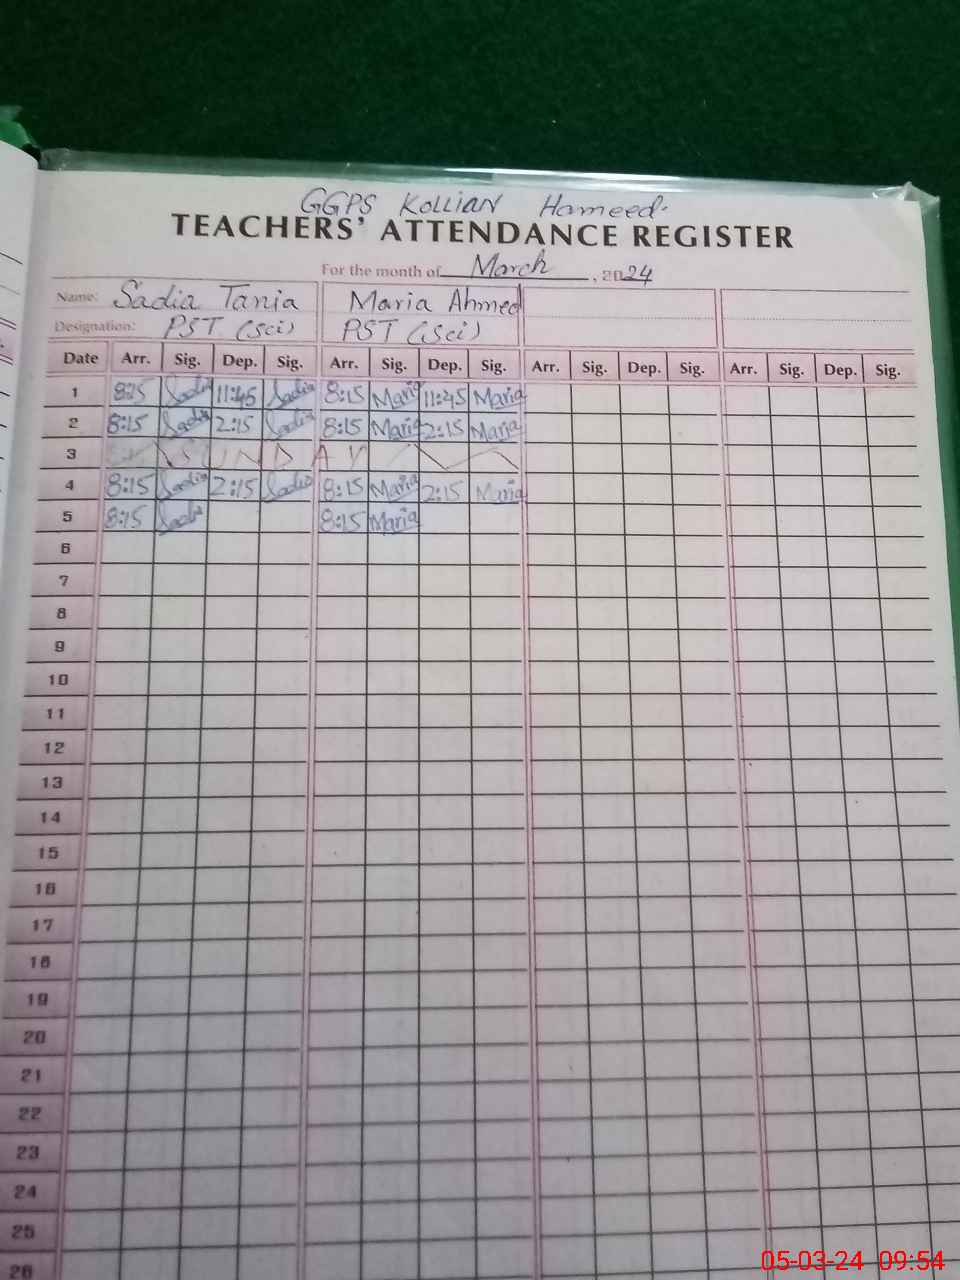 GGPS Kollian Hameed.
TEACHERS' ATTENDANCE REGISTER
For the month of March, 2024
Name: Sadia Tania Maria Ahmed
Designation: PST. (Sci) PST (Sci)
Date Arr. Sig. Dep. Sig. Arr. Sig. Dep. Sig. Arr. Sig. Dep. Sig. Arr. Sig. Dep. Sig.
1 8:15 Sadia 11:45 Sadia 8:15 Maria 11:45 Maria
2 8:15 Sadia 2:15 Sadia 8:15 Maria 2:15 Maria
3 SUNDAY
4 8:15 Sadia 2:15 Sadia 8:15 Maria 2:15 Maria
5 8:15 Sadia 8:15 Maria
6
7
8
9
10
11
12
13
14
15
16
17
18
19
20
21
22
23
24
25
26
05-03-24 09:54